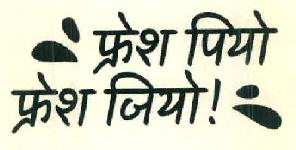 फ्रेश पियो
फ्रेश जियो!